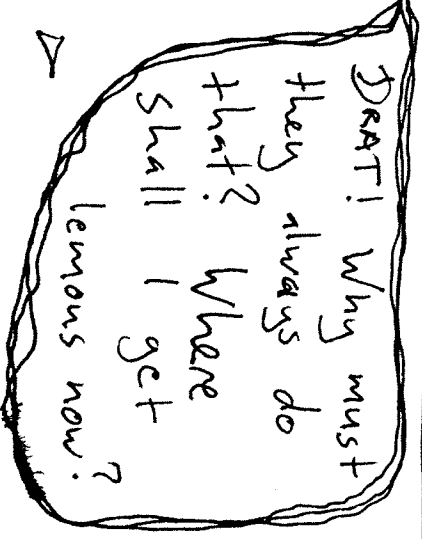 DRAT! Why must
they always do
that? Where
shall I get
lemons now?